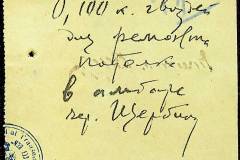 0,100 к. гвоздей
для ремонта
потолка
в амбаре
чер. Щербин